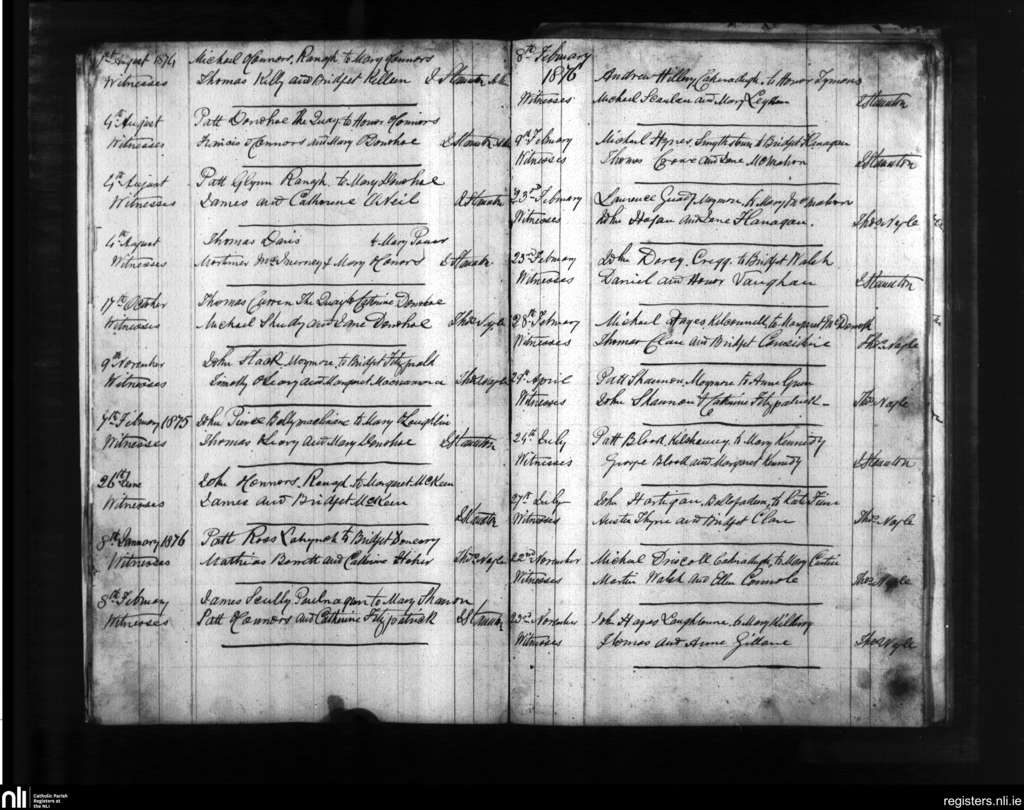 1st August 1874 Michael O'Connors, Ranagh to Mary O'Connors
Witnesses Thomas Kelly and Bridget Killeen J Staunton
4th August Patt Donohoe The Quay to Honor O'Connors
Witnesses Francis O'Connors and Mary O'Donohoe J Staunton
4th August Patt Glynn Ranagh to Mary Donohoe
Witnesses James and Catherine O'Neil J Staunton
4th August Thomas Davis & Mary Power
Witnesses Mortimer McInerney & Mary O'Connors J Staunton
17th October Thomas Curren The Quay to Catherine Donohoe
Witnesses Michael Sheedy and Jane Donohoe Thos Nagle
9th November John Slack Moymore, to Bridget Fitzpatrick
Witnesses Timothy O'Leary and Margaret Macnamara Thos Nagle
7th February 1875 John Pierce to Mary O'Loughlin
Witnesses Thomas O'Leary and Mary Donohoe J Staunton
26th June John Connors, Ranagh to Margaret McKeen
Witnesses James and Bridget McKeen
J Staunton
8th January 1876 Patt Ross Lahynch to Bridget
Witnesses Mathias Barrett and Catherine Thos Nagle
8th February James Scully to Mary Shannon
Witnesses Patt O'Connors and Catherine Fitzpatrick J Staunton
8th February
1876 Andrew Hillery Caheradagh, to Honor Tymons
Witnesses Michael Scanlan and Mary J Staunton
9th February Michael Hynes, Smythstown to Bridget Flanagan
Witnesses Thomas and Jane McMahon J Staunton
23rd February Laurence Moymore, to Mary McMahon
Witnesses John Hogan and Jane Flanagan. Thos Nagle
23rd February John Darcy, Cregg, to Bridget Walsh
Witnesses Daniel and Honor Vaughan J Staunton
28th February Michael Hayes Kilconnell, to Margaret McDermott
Witnesses Thomas Clair and Bridget Considine Thos Nagle
24th April Patt Shannon, Moymore to Anne Green
Witnesses John Shannon & Catherine Fitzpatrick Thos Nagle
24th July Patt Blood, Kilshanny, to Mary Kennedy
Witnesses George Blood and Margaret Kennedy J Staunton
27th July John Hartigan, to Kate
Witnesses Austin Thyne and Bridget Clair Thos Nagle
22nd November Michael Driscoll Caheradagh, to Mary
Witnesses Martin Walsh and Ellen Connole Thos Nagle
23rd November John Hayes, to Mary Hillery
Witnesses Thomas and Anne Gillane Thos Nagle
nli Catholic Parish
Registers at
the NLI
registers.nli.ie